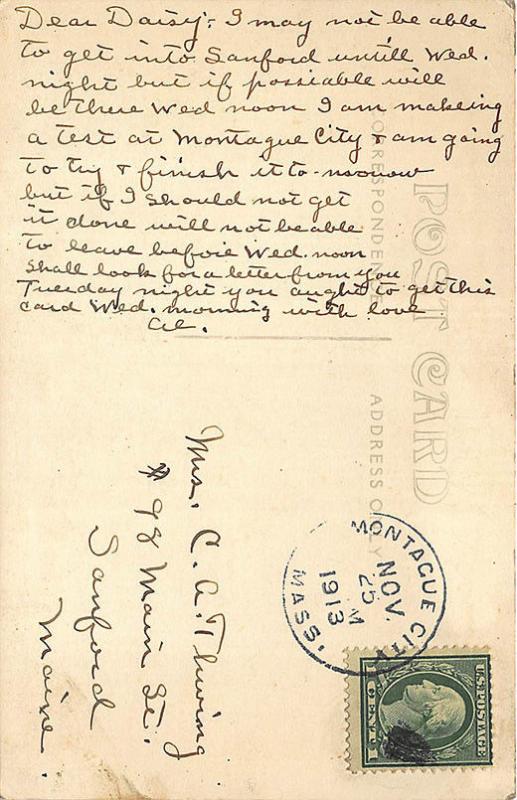 Dear Daisy:- I may not be able
to get into Sanford untill Wed.
night but if possiable will
be there Wed noon I am makeing
a test at Montague City & am going
to try & finish it to-
but if I should not get
it done will not be able
to leave before Wed. noon
shall look for a letter from you
Tuesday night you aught to get this
card Wed. morning with love
Al.
POST CARD
CORRESPONDENCE
ADDRESS ONLY
Mrs. C. A. Thwing
# 98 Main St.
Sanford
Maine.
MONTAGUE CITY
NOV.
25
M
1913
MASS.
U.S. POSTAGE
1 CENT 1